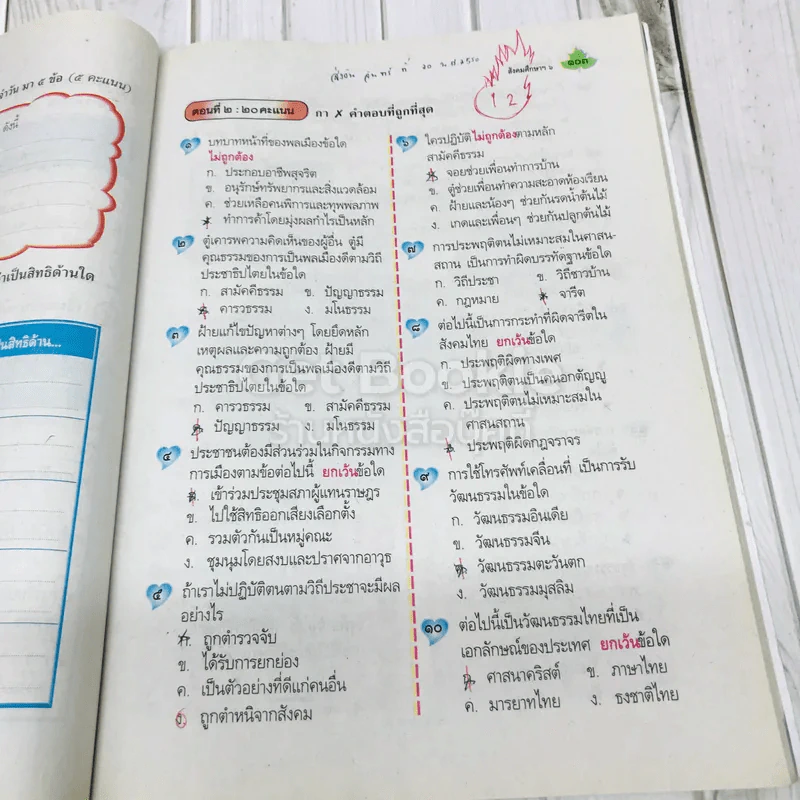 จำวัน มา ๕ ข้อ (๕ คะแนน)
ดังนี้
เป็นสิทธิด้านใด
สิทธิด้าน...
ส่งวัน จันทร์ ที่ 20 พ.ย.2550
สังคมศึกษาฯ ๖
๑๐๓
12
ตอนที่ ๒ : ๒๐ คะแนน กา ✗ คำตอบที่ถูกที่สุด
๑ บทบาทหน้าที่ของพลเมืองข้อใด
ไม่ถูกต้อง
ก. ประกอบอาชีพสุจริต
ข. อนุรักษ์ทรัพยากรและสิ่งแวดล้อม
ค. ช่วยเหลือคนพิการและทุพพลภาพ
ง. ทำการค้าโดยมุ่งผลกำไรเป็นหลัก
๒ ตู่เคารพความคิดเห็นของผู้อื่น ตู่มี
คุณธรรมของการเป็นพลเมืองดีตามวิถี
ประชาธิปไตยในข้อใด
ก. สามัคคีธรรม ข. ปัญญาธรรม
ค. คารวธรรม ง. มโนธรรม
๓ ฝ้ายแก้ไขปัญหาต่างๆ โดยยึดหลัก
เหตุผลและความถูกต้อง ฝ้ายมี
คุณธรรมของการเป็นพลเมืองดีตามวิถี
ประชาธิปไตยในข้อใด
ก. คารวธรรม ข. สามัคคีธรรม
ค. ปัญญาธรรม ง. มโนธรรม
๔ ประชาชนต้องมีส่วนร่วมในกิจกรรมทาง
การเมืองตามข้อต่อไปนี้ ยกเว้นข้อใด
ก. เข้าร่วมประชุมสภาผู้แทนราษฎร
ข. ไปใช้สิทธิออกเสียงเลือกตั้ง
ค. รวมตัวกันเป็นหมู่คณะ
ง. ชุมนุมโดยสงบและปราศจากอาวุธ
๕ ถ้าเราไม่ปฏิบัติตนตามวิถีประชาจะมีผล
อย่างไร
ก. ถูกตำรวจจับ
ข. ได้รับการยกย่อง
ค. เป็นตัวอย่างที่ดีแก่คนอื่น
ง. ถูกตำหนิจากสังคม
๖ ใครปฏิบัติไม่ถูกต้องตามหลัก
สามัคคีธรรม
ก. จอยช่วยเพื่อนทำการบ้าน
ข. ตู่ช่วยเพื่อนทำความสะอาดห้องเรียน
ค. ฝ้ายและน้องๆ ช่วยกันรดน้ำต้นไม้
ง. เกดและเพื่อนๆ ช่วยกันปลูกต้นไม้
๗ การประพฤติตนไม่เหมาะสมในศาสน-
สถาน เป็นการทำผิดบรรทัดฐานข้อใด
ก. วิถีประชา ข. วิถีชาวบ้าน
ค. กฎหมาย ง. จารีต
๘ ต่อไปนี้เป็นการกระทำที่ผิดจารีตใน
สังคมไทย ยกเว้นข้อใด
ก. ประพฤติผิดทางเพศ
ข. ประพฤติตนเป็นคนอกตัญญู
ค. ประพฤติตนไม่เหมาะสมใน
ศาสนสถาน
ง. ประพฤติผิดกฎจราจร
๙ การใช้โทรศัพท์เคลื่อนที่ เป็นการรับ
วัฒนธรรมในข้อใด
ก. วัฒนธรรมอินเดีย
ข. วัฒนธรรมจีน
ค. วัฒนธรรมตะวันตก
ง. วัฒนธรรมมุสลิม
๑๐ ต่อไปนี้เป็นวัฒนธรรมไทยที่เป็น
เอกลักษณ์ของประเทศ ยกเว้นข้อใด
ก. ศาสนาคริสต์ ข. ภาษาไทย
ค. มารยาทไทย ง. ธงชาติไทย